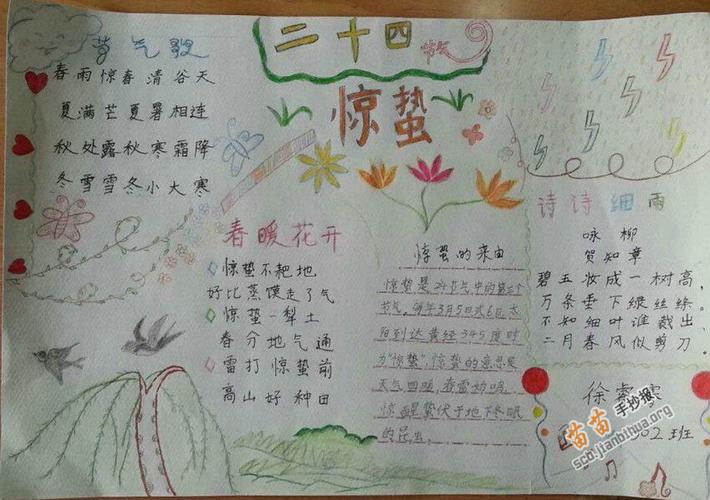 节气歌
春雨惊春清谷天
夏满芒夏暑相连
秋处露秋寒霜降
冬雪雪冬小大寒
二十四
节气
惊蛰
春暖花开
惊蛰不耙地
好比蒸馍走了气
惊蛰一犁土
春分地气通
雷打惊蛰前
高山好种田
惊蛰的来由
惊蛰是24节气中的第三个
节气。每年3月5日或6日太
阳到达黄经345度时
为“惊蛰”,惊蛰的意思是
天气回暖,春雷始鸣,
惊醒蛰伏于地下冬眠
的昆虫。
诗诗细雨
咏柳
贺知章
碧玉妆成一树高,
万条垂下绿丝绦。
不知细叶谁裁出,
二月春风似剪刀。
徐
302班
苗苗手抄报
scb.jianbihua.org